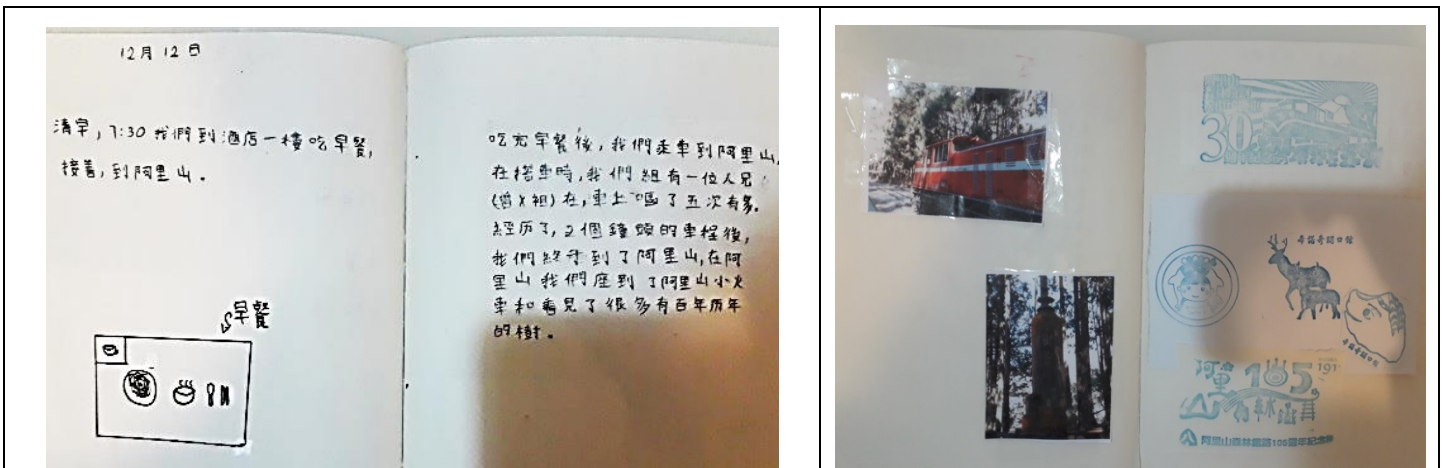 12月12日
清早,7:30我們到酒店一樓吃早餐,
接著,到阿里山。
早餐
吃完早餐後,我們走車到阿里山,
在搭車時,我們組有一位人兄
(曾X祖)在,車上嗌了五次有多。
經历了,2個鐘頭的車程後,
我們終于到了阿里山,在阿
里山我們座到了阿里山小火
車和看見了很多有百年历年
的樹。
30
奇萌奇萌口館
阿里山
105
191
有林鐵著
阿里山森林鐵路105週年紀念